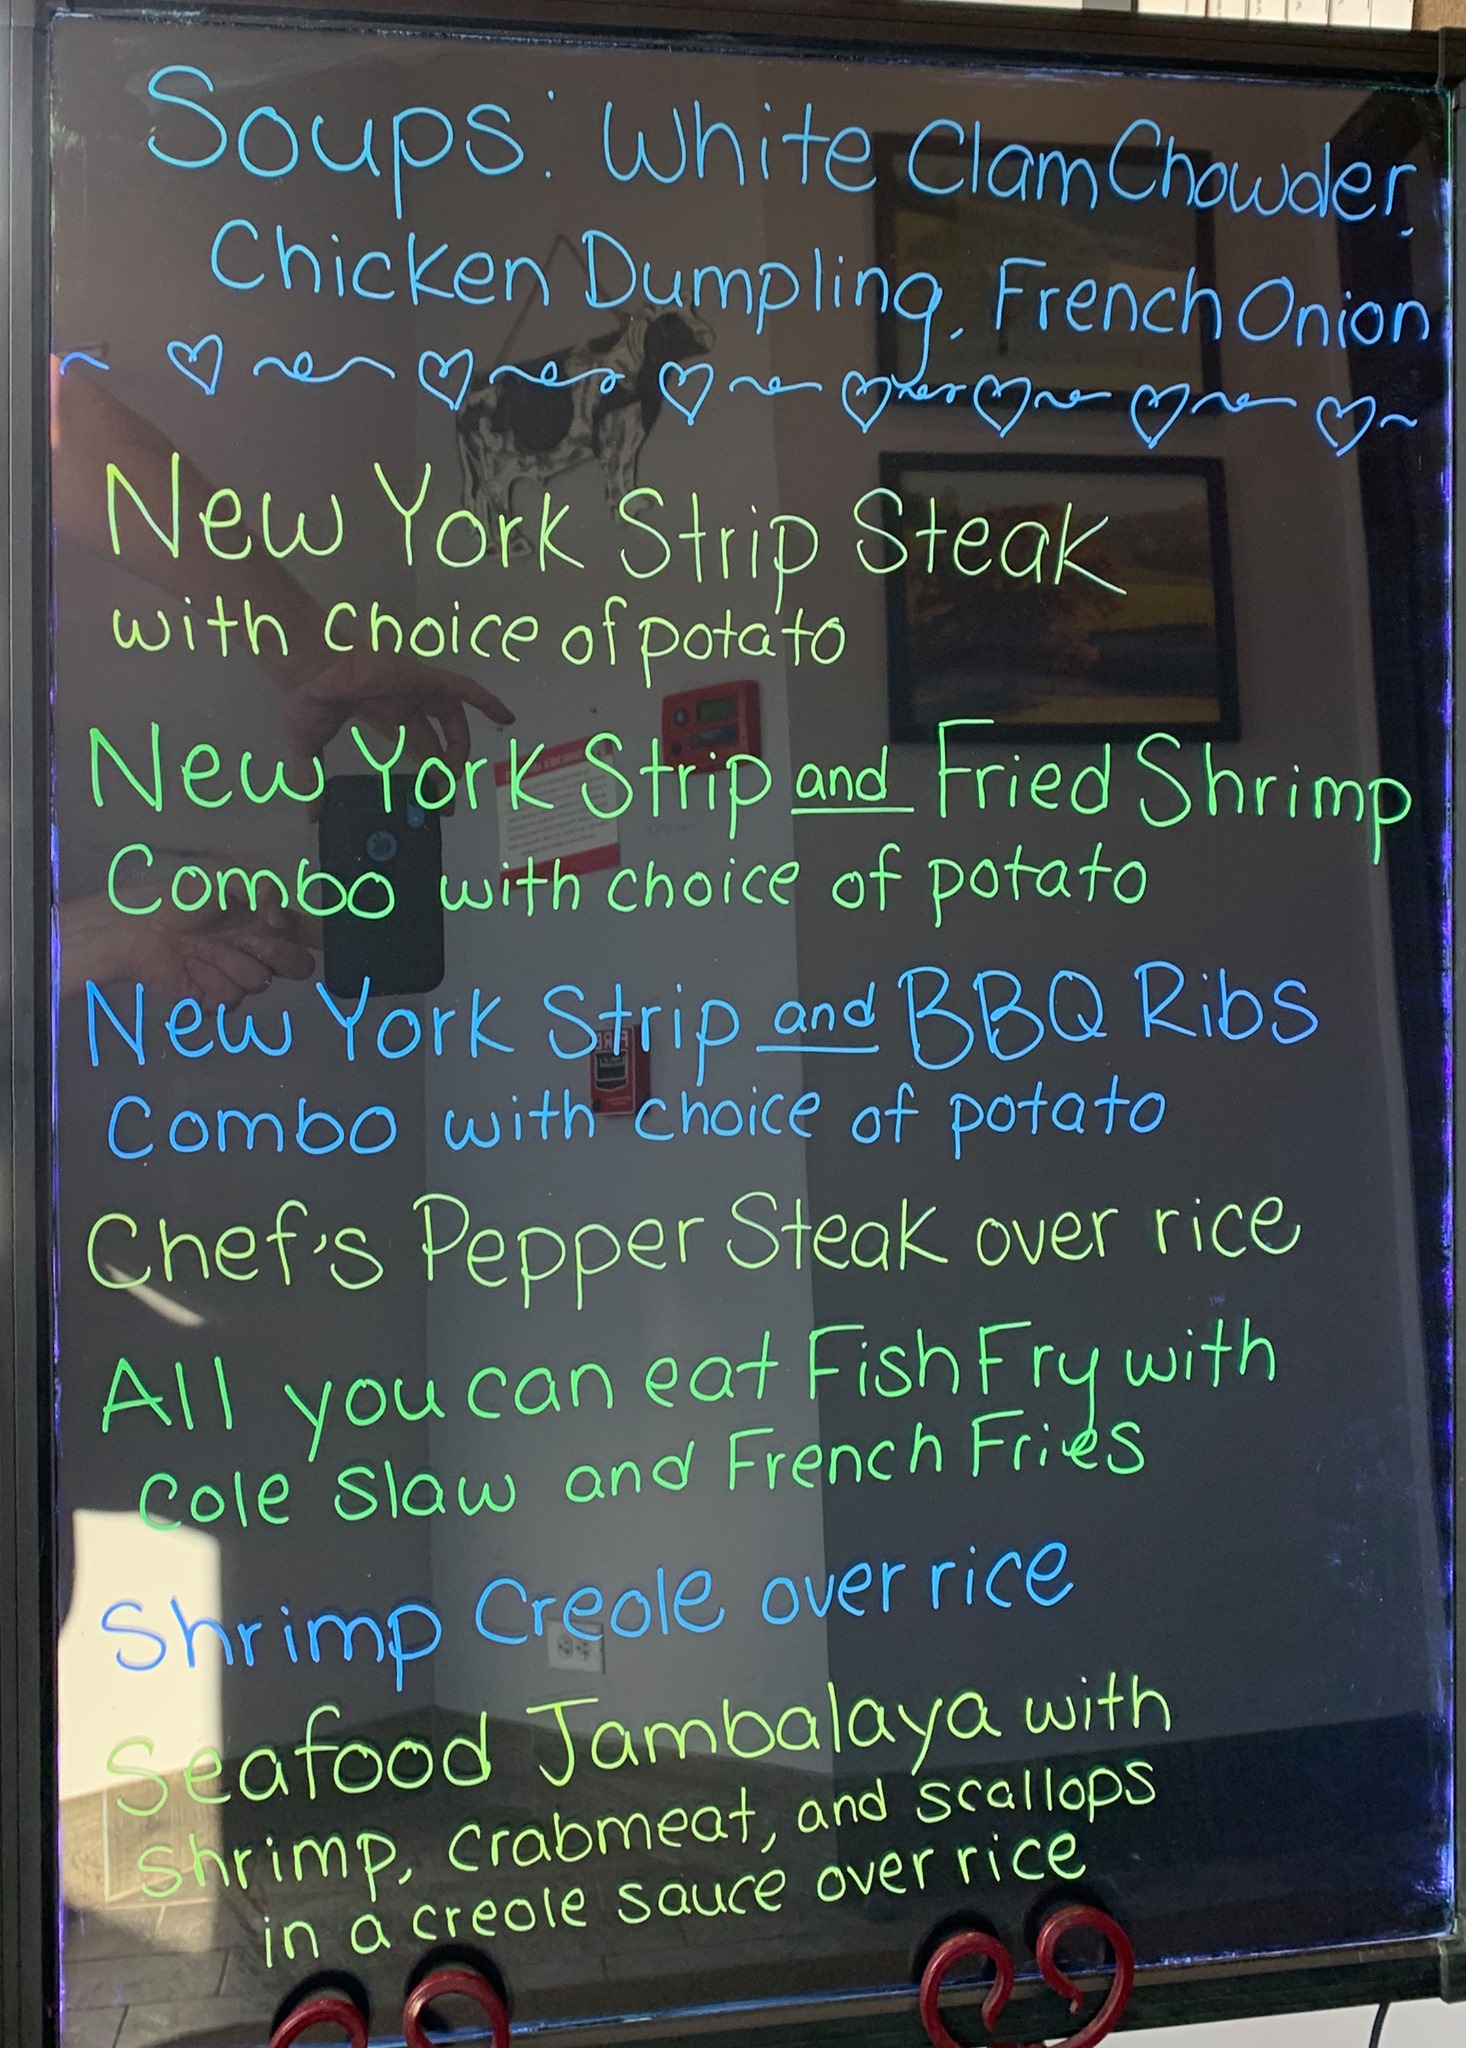 Soups: White Clam Chowder,
Chicken Dumpling, French Onion
New York Strip Steak
with choice of potato
New York Strip and Fried Shrimp
Combo with choice of potato
New York Strip and BBQ Ribs
Combo with choice of potato
Chef's Pepper Steak over rice
All you can eat Fish Fry with
Cole Slaw and French Fries
Shrimp Creole over rice
Seafood Jambalaya with
shrimp, crabmeat, and scallops
in a creole sauce over rice